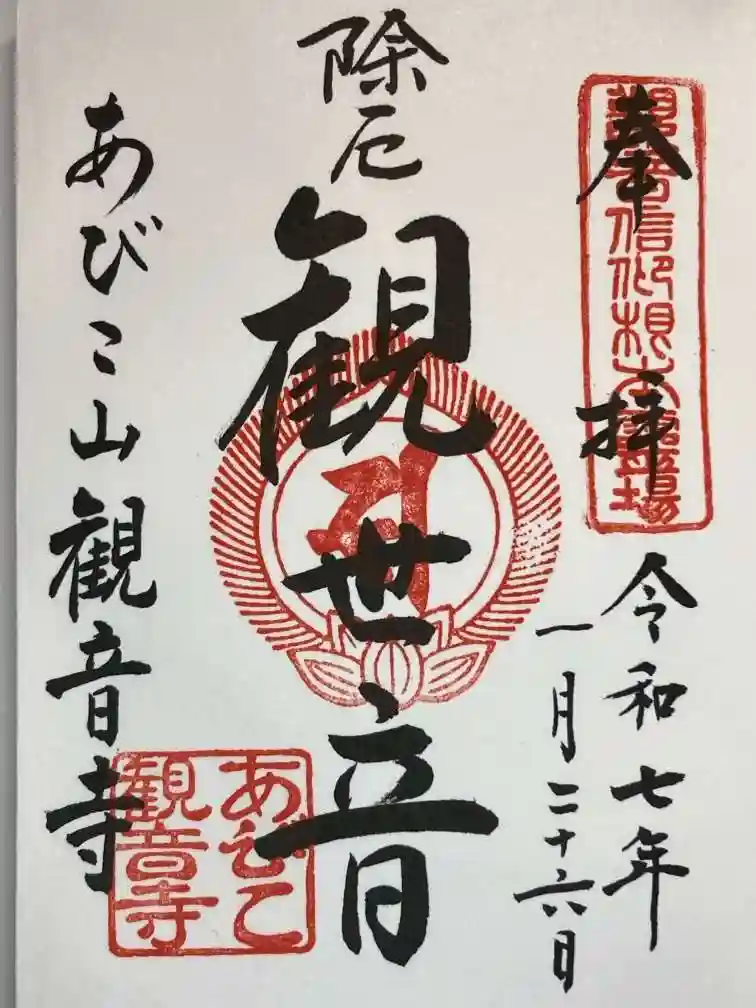 奉拝
観音信仰根本霊場
令和七年
一月二十六日
除厄
観世音
あびこ山観音寺
あびこ
観音寺